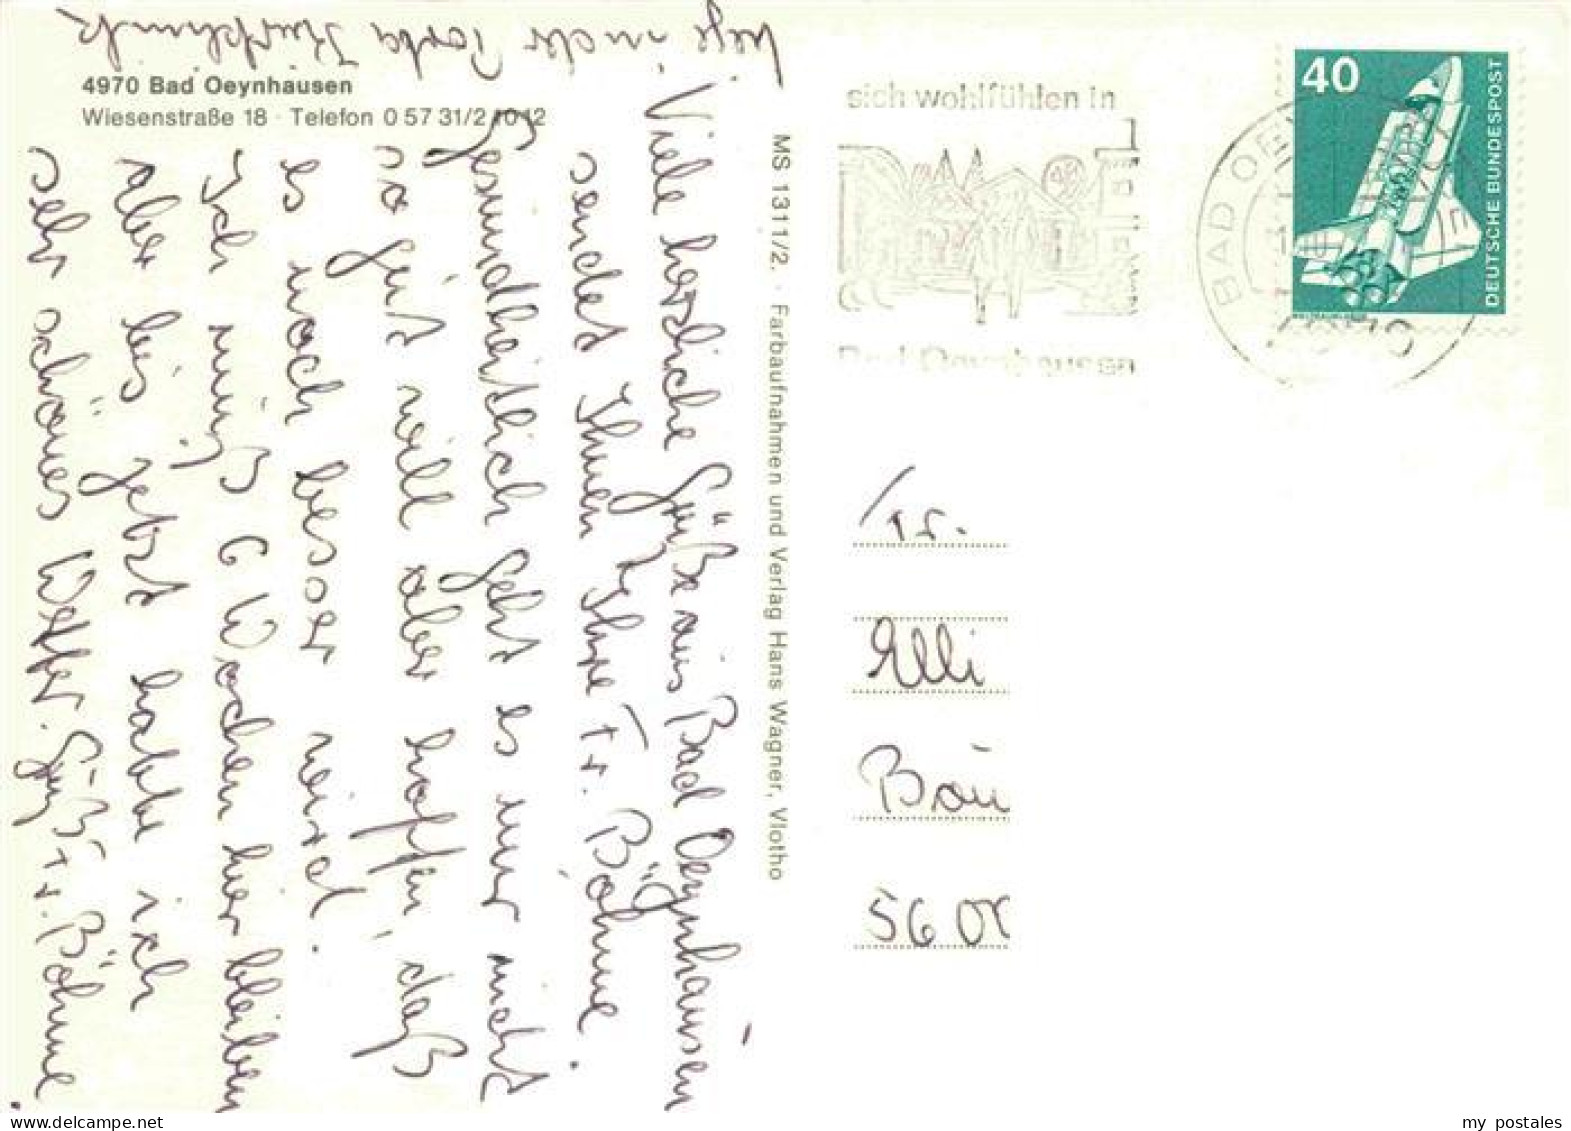 4970 Bad Oeynhausen
Wiesenstraße 18 · Telefon 0 57 31/2 10 12
Viele herzliche Grüße aus Bad Oeynhausen
sendet Ihnen Ihre Fr. Böhme.
Gesundheitlich geht es mir nicht
so gut will aber hoffen daß
es noch besser wird.
Ich muß 6 Wochen hier bleiben
aber bis jetzt hatte ich
sehr schönes Wetter. Gruß Fr. Böhme.
liege in der Porta
MS 1311/2. · Farbaufnahmen und Verlag Hans Wagner, Vlotho
sich wohlfühlen in
Bad Oeynhausen
BAD OEYNHAUSEN
40
DEUTSCHE BUNDESPOST
Fr.
Elli
Bau
5600
my postales